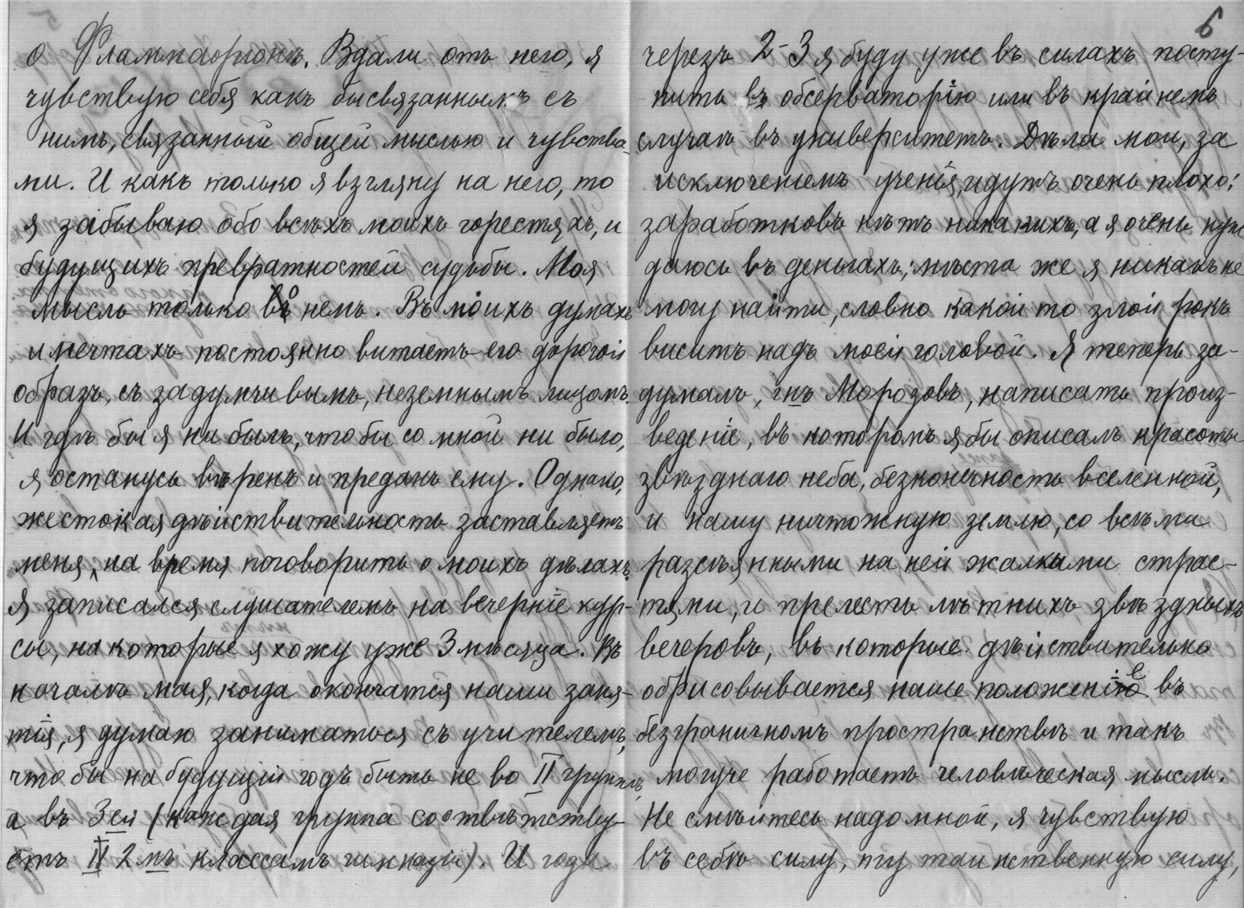 о Фламмаріонѣ. Вдали отъ него, я
чувствую себя какъ бы связаннымъ съ
нимъ, связанный общей мыслью и чувства-
ми. И какъ только я взгляну на него, то
я забываю обо всѣхъ моихъ горестяхъ, и
будущихъ превратностей судьбы. Моя
мысль только о немъ. Въ моихъ думахъ
и мечтахъ постоянно витаетъ его дорогой
образъ, съ задумчивымъ, неземнымъ лицомъ.
И гдѣ бы я ни былъ, что бы со мной ни было,
я останусь вѣренъ и преданъ ему. Однако,
жестокая дѣйствительность заставляетъ
меня, на время поговорить о моихъ дѣлахъ.
Я записался слушателемъ на вечерніе кур-
сы, на которые я хожу уже 3 мѣсяца. Въ
началѣ мая, когда окончатся наши заня-
тія, я думаю заниматься съ учителемъ,
что бы на будущій годъ быть не во II группѣ,
а въ 3ей (каждая группа соотвѣтству-
етъ 2мъ классамъ гимназіи). И годы
6
черезъ 2-3 я буду уже въ силахъ посту-
пить въ обсерваторію или въ крайнемъ
случаѣ въ университетъ. Дѣла мои, за
исключеніемъ ученія, идутъ очень плохо:
заработковъ нѣтъ никакихъ, а я очень нуж
даюсь въ деньгахъ; мѣста же я никакъ не
могу найти, словно какой то злой рокъ
виситъ надъ моей головой. Я теперь за-
думалъ, гнъ Морозовъ, написать произ-
веденіе, въ которомъ я бы описалъ красоты
звѣзднаго неба, безконечность вселенной,
и нашу ничтожную землю, со всѣми
разсѣянными на ней жалкими страс-
тями, и прелесть лѣтнихъ звѣздныхъ
вечеровъ, въ которые дѣйствительно
обрисовывается наше положеніе въ
безграничномъ пространствѣ и такъ
могуче работаетъ человѣческая мысль.
Не смѣйтесь надо мной, я чувствую
въ себѣ силу, ту таинственную силу,